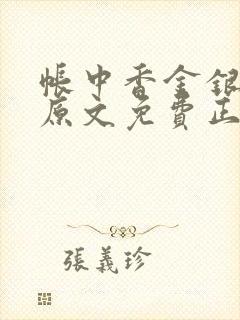 帳中香金銀
原文免費正
張義珍